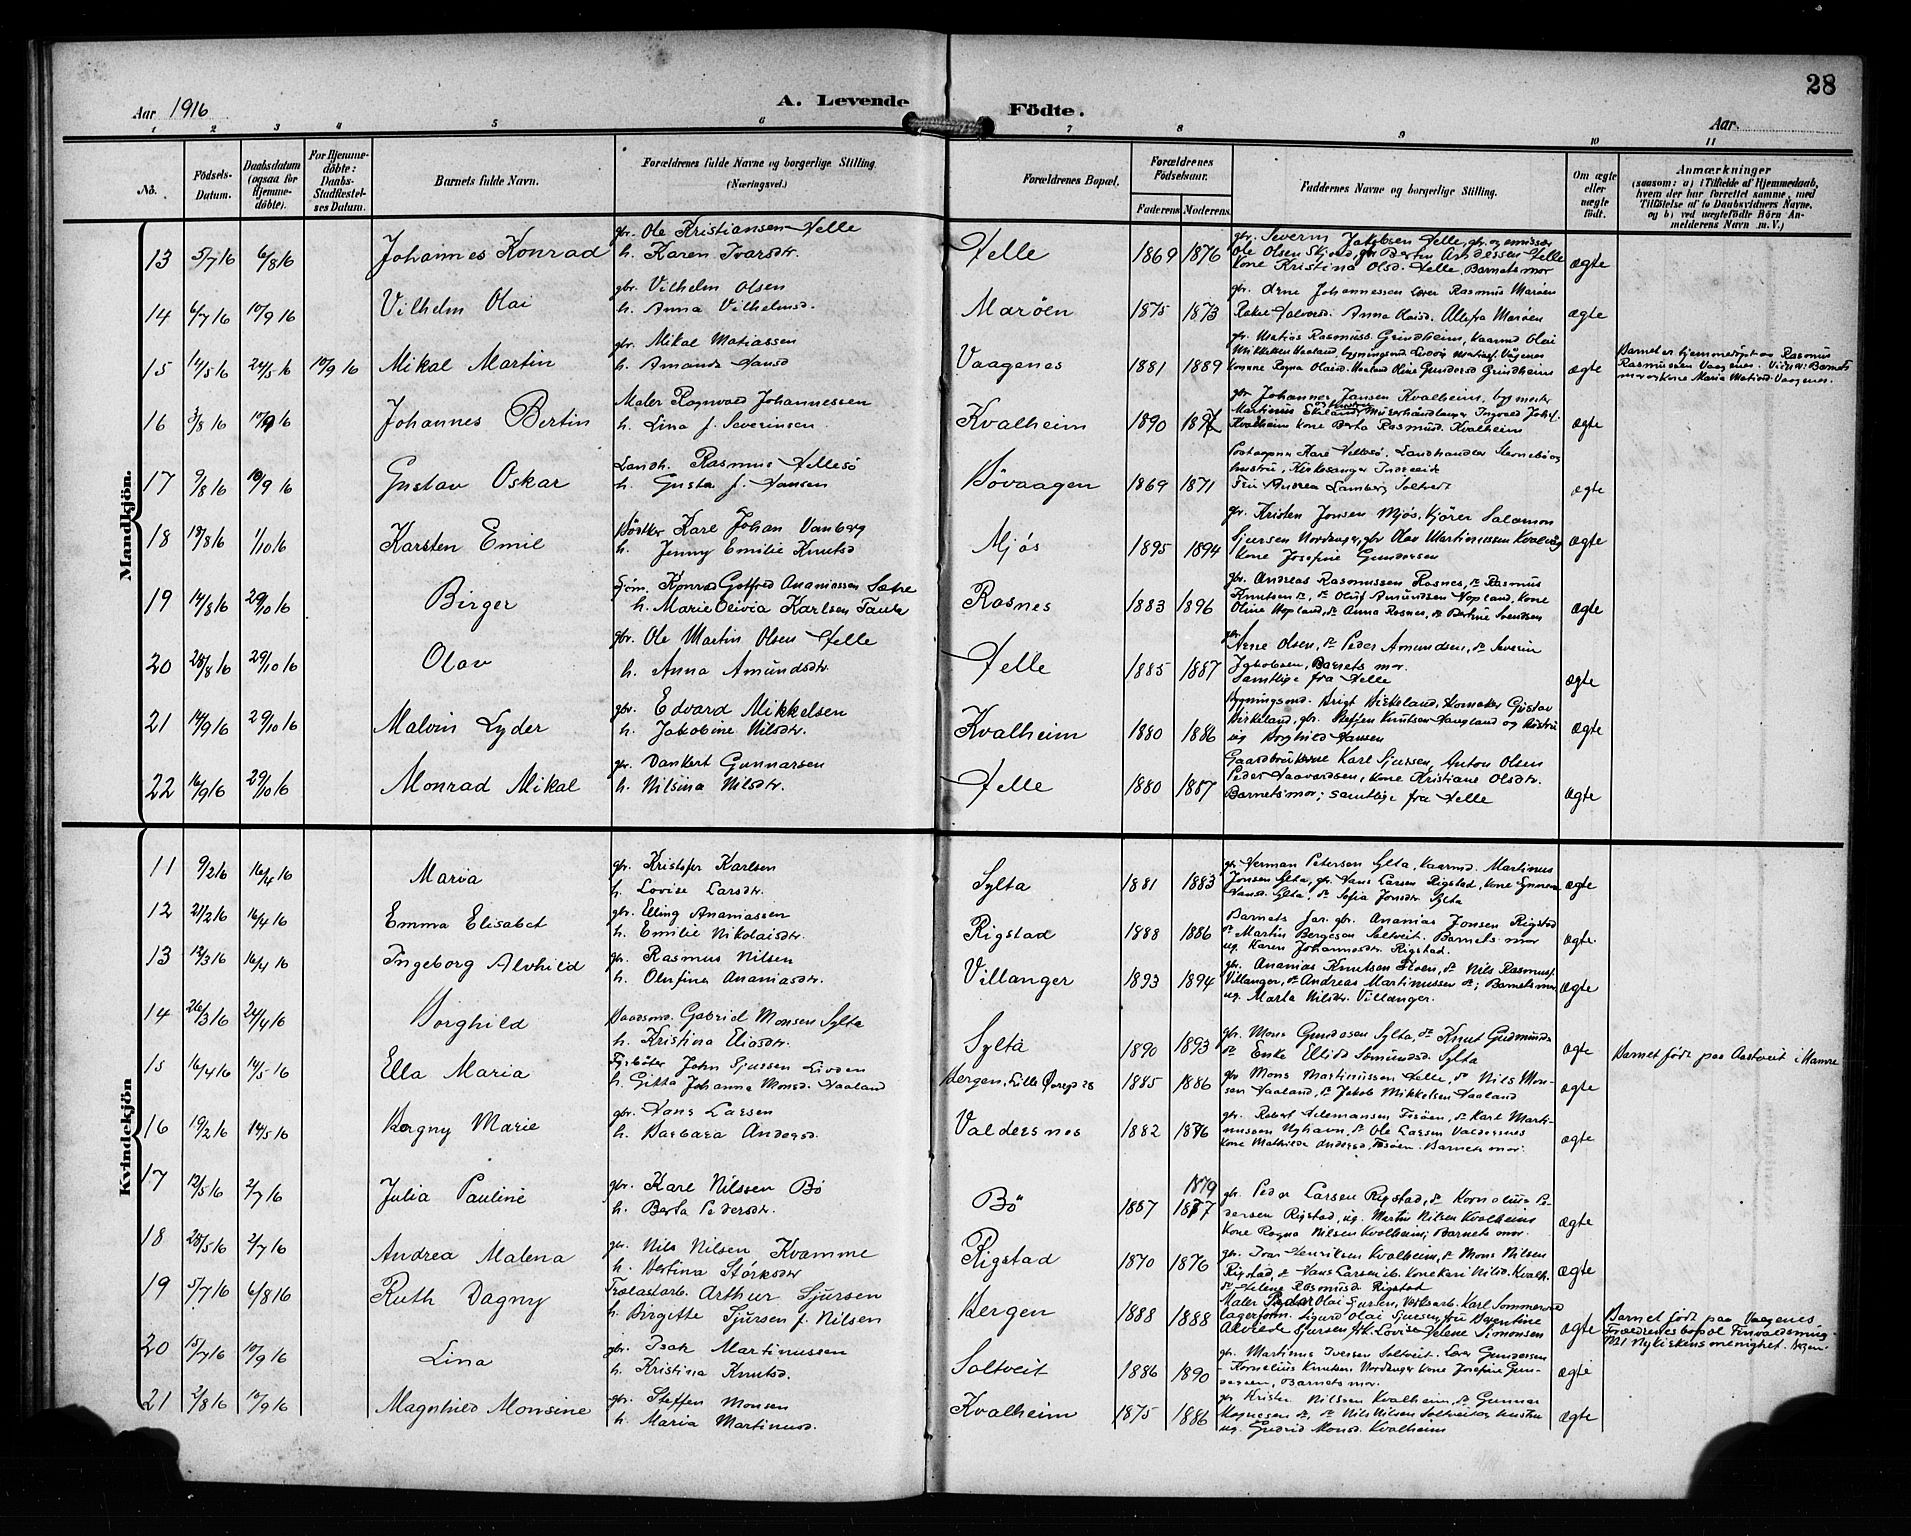 28
Aar 1916
A. Levende Födte.
Aar
1 2 3 4 5 6 7 8 9 10 11
No.
Födsels-Datum.
Daabsdatum (ogsaa for Hjemme-döbte).
For Hjemme-döbte: Daabs-Stadfæstel-ses Datum.
Barnets fulde Navn.
Forældrenes fulde Navne og borgerlige Stilling. (Næringsvei.)
Forældrenes Bopæl.
Forældrenes Födselsaar.
Faderens Moderens
Faddernes Navne og borgerlige Stilling.
Om ægte eller uægte födt.
Anmærkninger
(saasom: a) i Tilfælde af Hjemmedaab,
hvem der har forrettet samme, med
Tilföielse af to Daabsvidners Navne,
og b) ved uægtefödte Börn An-
melderens Navn m. V.)
Mandkjön.
13 5/7 16 6/8 16 Johannes Konrad gbr. Ole Kristiansen Helle
h. Karen Ivarsdtr. Helle 1869 1876 gbr. Severin Jakobsen Helle, gbr. og
Ole Olsen Skjord, gbr Bertin Andressen Helle
kone Kristina Olsd. Helle, Barnets mor ægte
14 6/7 16 10/9 16 Vilhelm Olai gbr. Vilhelm Olsen
h. Anna Vilhelmsd. Marøen 1875 1873 gbr. Arne Johannessen Lerer Rasmus Marøen
Anna Olaisd. Alle fra Marøen ægte
15 14/5 16 24/5 16 10/9 16 Mikal Martin gbr. Mikal Matiassen
h. Amanda Hansd Vaagenes 1881 1889 gbr. Matias Rasmuss. Grindheim, Olai
Mikkelsen Haaland, bygningsmd Ludvig Matiasf. Vågenes
Konene Ragna Olaisd. Haaland Oline Gundersd Grindheim ægte
Barnet er hjemmedøpt av Rasmus
Rasmussen Vaagenes. Vidner: Barnets
mor og kone Marie Matiasd Vaagenes.
16 3/8 16 10/9 16 Johannes Bertin Maler Ragnvald Johannessen
h. Lina f. Severinsen Kvalheim 1890 1892 gbr Johannes Jansen Kvalheim, bygmester
Martinus Eknland og hustru Ingvald Johs.
Kvalheim kone Berta Rasmusd. Kvalheim ægte
17 9/8 16 10/9 16 Gustav Oskar Landh. Rasmus Hellesø
h. Gusta f. Hansen Bövaagen 1869 1871 Postaapner Kare Hellesø, Landhandler og
hustru, Kirkesanger
Fru Andrea Lamberg Soltvedt ægte
18 18/8 16 1/10 16 Karsten Emil Bødker Karl Johan Vamberg
h. Jenny Emilie Knutsd Mjös 1895 1894 gbr. Kristen Jonsen Mjös, Kjörer Salamon
Sjursen Nordanger, gbr Olav Martinussen Kvalvåg
kone Josefine Gundersen ægte
19 14/8 16 29/10 16 Birger Sjøm. Konrad Gotfred Ananiassen Sætre
h. Marie Olivia Karlsen Rosnes 1883 1896 gbr. Andreas Rasmussen Rosnes, do Rasmus
Knutsen do, do Oluf Amundsen Hopland, kone
Oline Hopland, do Anna Rosnes, do Bertine Svendsen ægte
20 28/8 16 29/10 16 Olav gbr. Ole Martin Olsen Helle
h. Anna Amundsdtr. Helle 1885 1887 gbr. Arne Olsen, do Peder Amundsen, do Severin
Jakobsen, Barnets mor.
Samtlige fra Helle ægte
21 14/9 16 29/10 16 Malvin Lyder gbr. Edvard Mikkelsen
h. Jakobine Nilsdtr. Kvalheim 1880 1886 Bygningsmd. Brigt Birkeland, Gustav
Birkeland, gbr. Steffen Knutsen Haugland og hustru
ug Borghild Hansen ægte
22 16/9 16 29/10 16 Monrad Mikal gbr. Dankert Gunnarsen
h. Nilsina Nilsdtr. Helle 1880 1887 Gaardbrukerne Karl Sjursen, Anton Olsen
Peder Haavardsen, kone Kristiane Olsdtr.
Barnets mor; samtlige fra Helle ægte
Kvindekjön
11 9/2 16 16/4 16 Maria gbr. Kristofer Karlsen
h. Lovise Larsdtr. Sylta 1881 1883 gbr Herman Petersen Sylta, Martinus
Jonsen Sylta, gbr. Hans Larsen Rigstad, kone
Hansd. Sylta, do Sofia Jonsdtr. Sylta ægte
12 21/2 16 16/4 16 Emma Elisabet gbr. Elling Ananiassen
h. Emilie Nikolaisdtr. Rigstad 1888 1886 Barnets far gbr. Ananias Jonsen Rigstad
do Martin Bergeson Soltveit. Barnets mor
ug. Karen Johannesdtr. Rigstad. ægte
13 12/3 16 16/4 16 Ingeborg Alvhild gbr. Rasmus Nilsen
h. Olufina Ananiasdtr. Villanger 1893 1894 gbr. Ananias Knutsen, do Nils Rasmusf.
Villanger, do Andreas Martinussen do; Barnets mor,
ug. Marta Nilsdtr. Villanger. ægte
14 26/3 16 24/4 16 Borghild Baadsmd. Gabriel Monsen Sylta
h. Kristina Eliasdtr. Sylta 1890 1893 gbr. Mons Gundesen Sylta, do Knut Gudmunds.
do Enke Ellid Semundsd. Sylta ægte Barnet född paa Aastveit i Hamre
15 16/4 16 14/5 16 Ella Maria John Sjursen Livden
h. Gitta Johanna Monsd. Haaland Bergen, Lille Øvregd 28 1885 1886 gbr Mons Martinussen Helle, do Nils Mon-
sen Haaland, do Jakob Mikkelsen Haaland ægte
16 19/2 16 14/5 16 Bergny Marie gbr. Hans Larsen
h. Barbara Andersd. Valdersnes 1882 1876 gbr. Robert Hilemansen Fosöen, do Karl Marti-
nussen Nyhavn, do Ole Larsen Valdersnes
Kone Mathilda Andersd, Fosöen. Barnets mor. ægte
17 12/5 16 2/7 16 Julia Pauline gbr. Karl Nilssen Bö
h. Berta Pedersdtr. Bö 1887 1877 1879 gbr. Peder Larsen Rigstad, do Kornelius Pe-
dersen Rigstad, ug. Martin Nilsen Kvalheim
Kone Ragna Nilsen Kvalheim; Barnets mor. ægte
18 28/5 16 2/7 16 Andrea Malena gbr. Nils Nilsen Kvamme
h. Bertina Störksdtr Rigstad 1870 1876 gbr. Ivar Henriksen Kvalheim, do Mons Nilsen
Rigstad, do Hans Larsen ib. Kone Kari Nilsd. Kvalh.
do Helene Rasmusd Rigstad ægte
19 5/7 16 6/8 16 Ruth Dagny Arthur Sjursen
h. Birgitte Sjursen f. Nilsen Bergen 1888 1888 Maler Peder Olai Sjursen, Verksarb. Karl Sommerad
Lagerform. Sigurd Olai Sjursen, fru Berentine
Alvilde Sjursen, frk. Lovise Helene Simonsen ægte Barnet född paa Vaagenes
Forældrenes bopæl
Nykirkens menighet. Bergen
20 15/7 16 10/9 16 Lina gbr. Isak Martinussen
h. Kristina Knutsd. Soltveit 1886 1890 gbr. Martinus Iversen Soltveit. Lerer Gundersen
Kornelius Knutsen Nordanger kone Josefine Gun-
dersen, Barnets mor. ægte
21 2/8 16 10/9 16 Magnhild Monsine gbr. Steffen Monsen
h. Maria Martinusd. Kvalheim 1875 1886 gbr Krister Nilssen Kvalheim, do Gunnar
Magnesen do, do Nils Nilsen Soltveit og hustru
ug. Gudrid Monsd. Kvalheim ægte